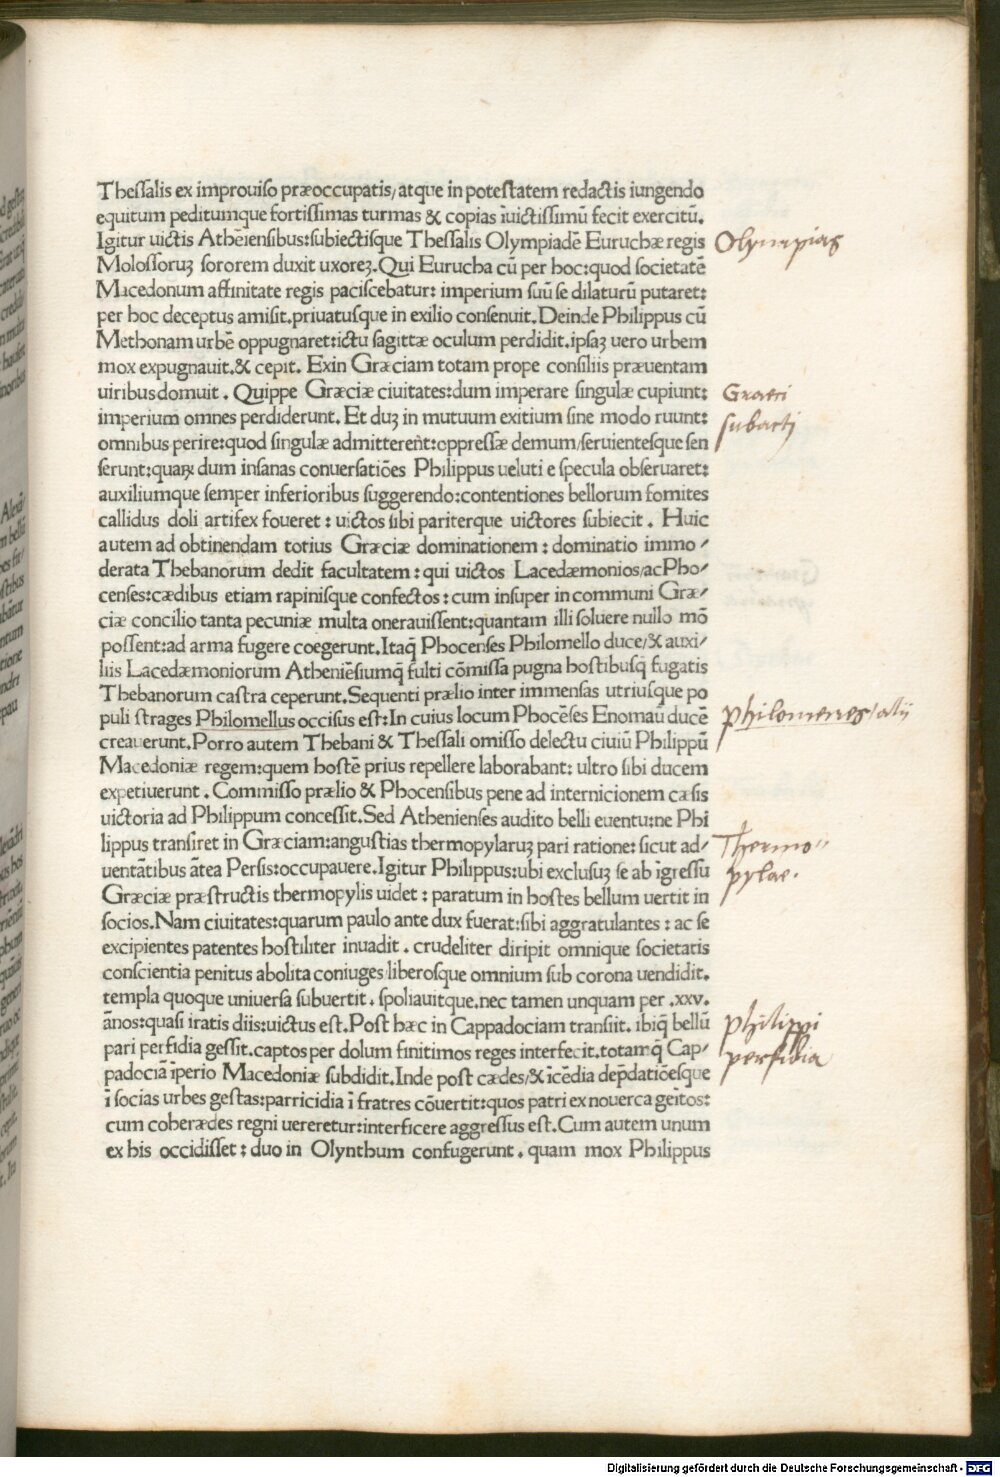 Thessalis ex improuiso præoccupatis/atque in potestatem redactis iungendo
equitum peditumque fortissimas turmas & copias īuictissimū fecit exercitū.
Igitur uictis Athēiensibus:subiectisque Thessalis Olympiadē Euruchæ regis
Olympias
Molossoruꝫ sororem duxit uxoreꝫ. Qui Eurucha cū per hoc:quod societatē
Macedonum affinitate regis paciscebatur: imperium suū se dilaturū putaret:
per hoc deceptus amisit.priuatusque in exilio consenuit. Deinde Philippus cū
Methonam urbē oppugnaret:ictu sagittæ oculum perdidit.ipsaꝫ uero urbem
mox expugnauit.& cepit. Exin Græciam totam prope consiliis præuentam
uiribus domuit. Quippe Græciæ ciuitates:dum imperare singulæ cupiunt:
Graeci
imperium omnes perdiderunt. Et duꝫ in mutuum exitium sine modo ruunt:
subacti
omnibus perire:quod singulæ admitterent̄:oppressæ demum/seruientesque sen
serunt:quaꝝ dum insanas conuersatiōes Philippus ueluti e specula obseruaret:
auxiliumque semper inferioribus suggerendo:contentiones bellorum fomites
callidus doli artifex foueret: uictos sibi pariterque uictores subiecit. Huic
autem ad obtinendam totius Græciæ dominationem: dominatio immo/
derata Thebanorum dedit facultatem: qui uictos Lacedæmonios/ac Pho/
censes:cædibus etiam rapinisque confectos: cum insuper in communi Græ/
ciæ concilio tanta pecuniæ multa onerauissent:quantam illi soluere nullo mō
possent:ad arma fugere coegerunt.Itaq̄ Phocenses Philomello duce/& auxi/
liis Lacedæmoniorum Atheniēsiumq̄ fulti cōmissa pugna hostibusq̄ fugatis
Thebanorum castra ceperunt.Sequenti prælio inter immensas utriusque po
puli strages Philomellus occisus est:In cuius locum Phocēses Enomaū ducē
philomenes/alii
creauerunt.Porro autem Thebani & Thessali omisso delectu ciuiū Philippū
Macedoniæ regem:quem hostē prius repellere laborabant: ultro sibi ducem
expetiuerunt. Commisso prælio & Phocensibus pene ad internicionem cæsis
uictoria ad Philippum concessit. Sed Athenienses audito belli euentu:ne Phi
lippus transiret in Græciam:angustias thermopylaruꝫ pari ratione: sicut ad/
Thermo"
uentātibus ātea Persis:occupauere.Igitur Philippus:ubi exclusuꝫ se ab īgressu
pylae.
Græciæ præstructis thermopylis uidet: paratum in hostes bellum uertit in
socios.Nam ciuitates:quarum paulo ante dux fuerat:sibi aggratulantes: ac se
excipientes patentes hostiliter inuadit. crudeliter diripit omnique societatis
conscientia penitus abolita coniuges/liberosque omnium sub corona uendidit.
templa quoque uniuersa subuertit. spoliauitque.nec tamen unquam per .xxv.
ānos:quasi iratis diis:uictus est.Post hæc in Cappadociam transiit. ibiq̄ bellū
philippi
pari perfidia gessit.captos per dolum finitimos reges interfecit.totamq̄ Cap/
perfidia
padociā īperio Macedoniæ subdidit.Inde post cædes/& īcēdia dep̄datiōesque
ī socias urbes gestas:parricidia ī fratres cōuertit:quos patri ex nouerca geītos:
cum cohærædes regni uereretur:interficere aggressus est.Cum autem unum
ex his occidisset: duo in Olynthum confugerunt. quam mox Philippus
Digitalisierung gefördert durch die Deutsche Forschungsgemeinschaft - DFG